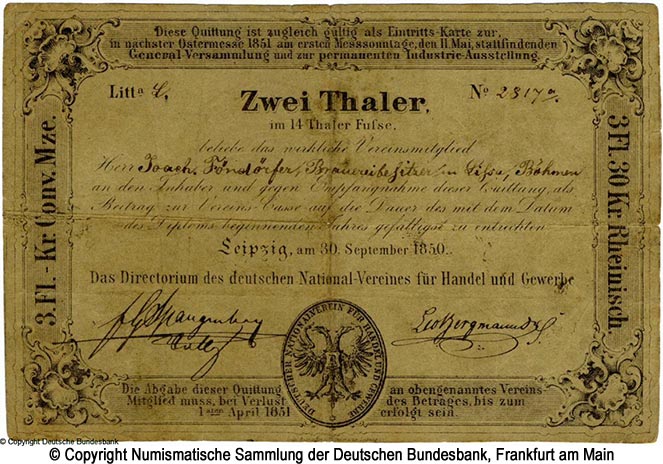 Diese Quittung ist zugleich gültig als Eintritts-Karte zur,
in nächster Ostermesse 1851 am ersten Messsonntage, den 11 Mai, stattfindenden
General-Versammlung und zur permanenten Industrie-Ausstellung
Litta
No 2817a
Zwei Thaler,
im 14 Thaler Fusse,
beliebe das wirkliche Vereinsmitglied
Herr Joach. Föndörfer, Brauereibesitzer in Lissa, Böhmen
an den Inhaber und gegen Empfangnahme dieser Quittung, als
Beitrag zur Vereins-Casse auf die Dauer des mit dem Datum
des Diploms beginnenden Jahres gefälligst zu entrichten
Leipzig, am 30. September 1850.
Das Directorium des deutschen National-Vereines für Handel und Gewerbe
3.Fl.-Kr. Conv. Mze.
3 Fl. 30 Kr. Rheinisch.
DEUTSCHER NATIONALVEREIN FÜR HANDEL UND GEWERBE
Die Abgabe dieser Quittung an obengenanntes Vereins-
Mitglied muss, bei Verlust des Betrages, bis zum
1sten April 1851 erfolgt sein.
© Copyright Deutsche Bundesbank
© Copyright Numismatische Sammlung der Deutschen Bundesbank, Frankfurt am Main